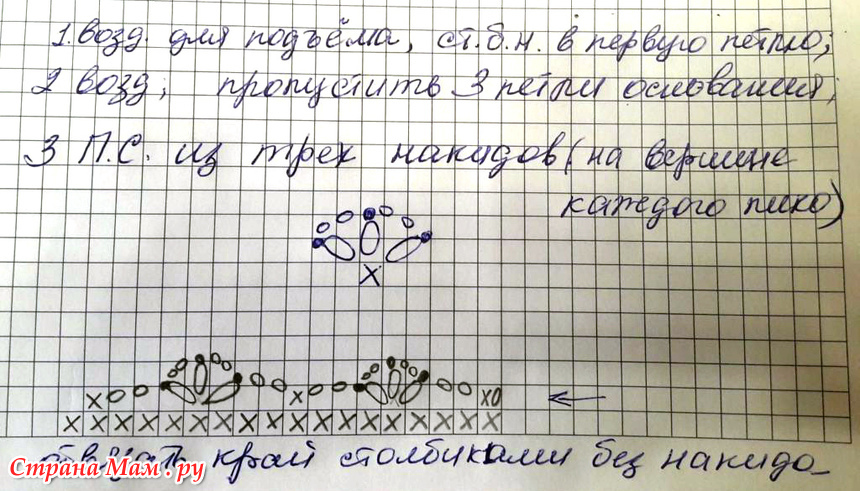 1. возд. для подъёма, ст.б.н. в первую петлю;
2 возд; пропустить 3 петли основания;
3 П.С. из трех накидов (на вершине
каждого пико)
обвязать край столбиками без накида_
Страна Мам.ру